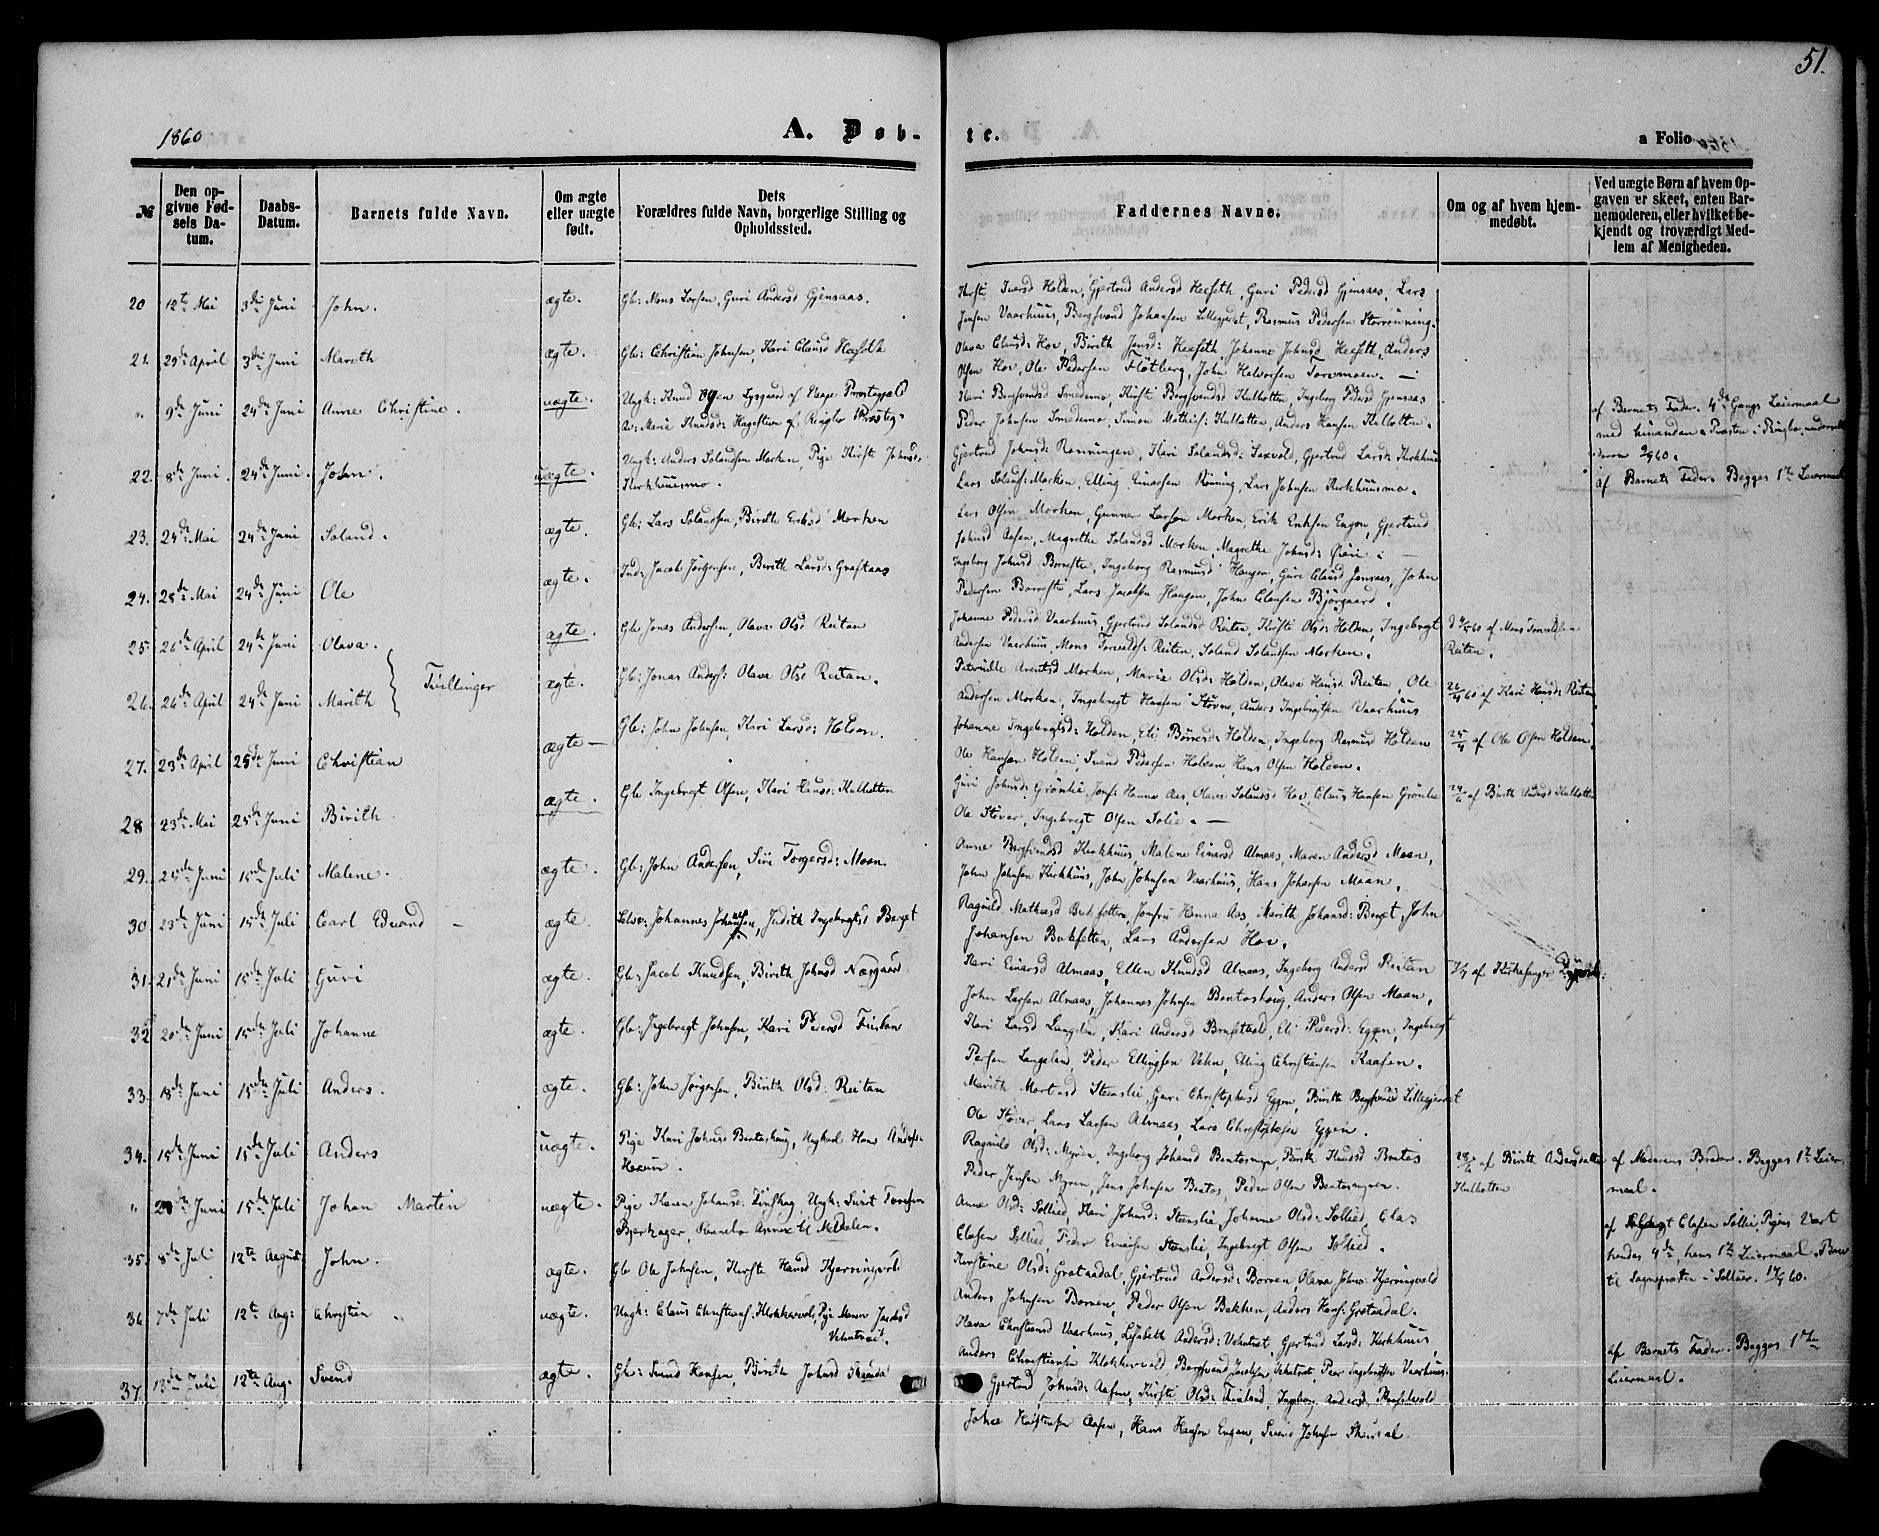 51.
1860
A. Døb-
te.
a Folio
№
Den op-
givne Fød-
sels Da-
tum.
Daabs-
Datum.
Barnets fulde Navn.
Om ægte
eller uægte
født.
Dets
Forældres fulde Navn, borgerlige Stilling og
Opholdssted.
Faddernes Navne.
Om og af hvem hjem-
medøbt.
Ved uægte Børn af hvem Op-
gaven er skeet, enten Bar-
nemoderen, eller hvilket be-
kjendt og troværdigt Med-
lem af Menigheden.
20 12te Mai 3die Juni John. ægte. Gb: Mons Larsen, Guri Andersd Gjensaas.
Iversd Holden, Gjertrud Andersd Heksth, Guri Pedersd Gjensaas, Lars
Jensen Vaarhuus, Bergsvend Johansen Lillegjerdet, Rasmus Pedersen Storrønning.
21. 29de April 3die Juni Mareth ægte. Gb: Christian Johnsen, Kari Clausd Heksth
Olava Clausd: Hov, Birith Jensd: Heksth, Johanne Johnsd Heksth, Anders
Olsen Hov, Ole Pedersen Flötberg, John Halvorsen Torvmoen. —
" 9de Juni 24de Juni Anne Christine. uægte. Ungk: Knud Olsen Lysgaard af Præstegjeld
Marie Knudsd: Hagesteen af Ringebo Præsteg:
Kari Bergsvendsd Smedmo, Kirsti Bergsvendsd Kullotten, Ingeborg Pedersd Gjensaas
Peder Johnsen Smedmo, Simon Mathis: Kullotten, Anders Hansen Kullotten.
af Barnets Fader. 4de Gangs Leiermaal
med hinanden. Præsten i Ringebo underrettet
derom 2/7 60.
22. 8de Juni. 24de Juni. John. uægte. Ungk: Anders Solandsen Morken, Pige Kirsti Johnsd.
Kirkhuusmo.
Gjertrud Johnsd: Rønningen, Kari Solandsd: Saxvold, Gjertrud Larsd: Kirkhuus
Lars Solands: Morken, Elling Einarsen Röning, Lars Johnsen Kirkhuusmo.
af Barnets Fader. Begges 1te Leiermaal
23. 24de Mai 24de Juni Soland. ægte. Gb: Lars Solandsen, Birith Eriksd Morken
Lars Olsen Morken, Gunner Larsen Morken, Erik Eriksen Engen, Gjertrud
Johnsd Aasen, Magrethe Solandsd Morken, Magrethe Johnsd: Öien. —
24. 28de Mai 24de Juni Ole ægte. Ind: Jacob Jörgensen, Birith Larsd: Graftaas
Ingeborg Johnsd Borrestie, Ingeborg Rasmusd Haugen, Guri Clausd Jensaas, John
Pedersen Borrestie, Lars Jacobsen Haugen, John Clausen Bjørgaard.
25. 26de April 24de Juni Olava. ægte. Gb. Jonas Andersen, Olava Olsd Reitan
Johanne Pedersd Vaarhuus, Gjertrud Solandsd Reiten, Kirsti Olsd: Holden, Ingebregt
Andersen Vaarhuus, Mons Torvalds: Reiten, Soland Solandsen Morken.
af Mons Torvaldsen
Reiten.
Tvillinger
26. 26de April 24de Juni Marith ægte. Gb: Jonas Anders: Olava Olsd Reitan.
Petrnille Arentsd Morken, Marie Olsd: Holden, Olava Hansd: Reiten, Ole
Andersen Morken, Ingebregt Hansen Støvne, Anders Ingebrigtsen Vaarhuus
26/4 60 af Kari Hansd: Reitan
27. 23de April 25de Juni Christian ægte — Gb: John Johnsen, Kari Larsd: Holden.
Johanne Ingebregtsd: Holden, Eli Börresd: Holden, Ingeborg Rasmusd Holden
Ole Hansen Holden, Svend Pedersen Holden, Hans Olsen Holden.
25/4 af Ole Olsen Holden.
28 23de Mai 25de Juni Birith ægte. Gb Ingebregt Olsen, Kari Hansd: Kullotten
Guri Johnsd: Grönlie, Jomf: Hanna Aas, Olava Solandsd Hov, Claus Hansen Grönlie
Ole Stöver, Ingebregt Olsen Solie. —
af Birith Andersd Kullotten
29. 25de Juni 15de Juli Malene. ægte. Gb: John Andersen, Siri Torgersd: Moan.
Anne Bergsvendsd Kirkhuus, Malene Einarsd Almaas, Maren Andersd Moan,
John Johnsen Kirkhuus, John Johnsen Vaarhuus, Hans Johansen Moan.
30 23de Juni 15de Juli Carl Edvard ægte. Selve: Johannes Johansen, Judith Ingebregtsd Berget
Ragnild Mathiasd Bukfetten, Jomfru Hanna Aas, Marith Johansd: Berget, John
Johansen Bukfetten, Lars Andersen Hov.
31. 21de Juni 15de Juli Guri ægte. Gb: Jacob Knudsen, Birith Johnsd Norgaard
Kari Einarsd Almaas, Ellen Knudsd Almaas, Ingeborg Andersd Reitan
John Larsen Almaas, Johannes Johnsen Bentashaug, Anders Olsen Moan.
af Kirkesanger
32 20de Juni 15de Juli Johanne ægte. Gb. Ingebregt Johnsen, Kari Pedersd
Kari Larsd Langeland, Kari Andersd, Eli Pedersd: Eggen, Ingebregt
Persen Langeland, Peder Ellingsen Vehn, Elling Christiansen Kaasen.
33. 18de Juni 15de Juli Anders. ægte. Gb: John Jörgensen, Birith Olsd. Reitan
Marith Mortensd Stenslie, Guri Christophersd Eggen, Birith Bergsvendsd Lillegjerdet
Ole Stöver, Lars Larsen Almaas, Lars Christophersen Eggen.
34. 15de Juni 15de Juli Anders uægte. Pige Kari Johnsd Bentashaug, Ungkarl Hans Anders:
Ragnild Olsd: Myren, Ingeborg Johansd Bentosmyr, Birith Knudsd Bentos
Peder Jensen Myren, Jens Johnsen Bentos, Peder Olsen Bentosmyren.
28/6 af Birith Andersdatter
Kullotten
af Moderens Broder. Begges 1te Leier
maal.
" 20de Juni 15de Juli Johan Martin uægte. Pige Karen Johansd: Ungk: Sivert Tomesen
Bjerkager, Annex til Meldalen.
Anne Olsd: Sollied, Kari Johnsd: Stenslie, Johanne Olsd: Sollied, Clas
Clasen Sollied, Peder Einarsen Stenslie, Ingebregt Olsen Sollied.
af Clasen Sollie, Pigens Vært
hendes 4de, hans 1te Leiermaal.
til Sognepræsten i 17/7 60.
35. 8de Juli 12te August John. ægte. Gb Ole Johnsen, Kirsti Hansd Kjerringvold
Kirstine Olsd: Grotaadal, Gjertrud Andersd: Borren, Olava Johns: Kjeringvold
Anders Johnsen Borren, Peder Olsen Bakken, Anders Hans: Grotaadal.
36 7de Juli 12te Aug: Christen uægte. Ungk: Claus Christians: Klokkervold, Pige Maren Jacobsd
Vehntrøet.
Olava Christiansd Vaarhuus, Lisabeth Andersd: Vehntrøet, Gjertrud Larsd: Kirkhuus,
Anders Christiansen Klokkervold, Bergsvend Jacobsen Vehntrøet, Peer Ingebrigtsen Vaarhuus.
af Barnets Fader. Begges 1ste
Leiermaal.
37. 13de Juli 12te Aug: Svend ægte. Gb: Svend Hansen, Birith Johnsd
Gjertrud Johnsd: Aasen, Kirsti Olsd:, Ingeborg Andersd
Aasen, Hans Hansen Engan, Svend Johnsen